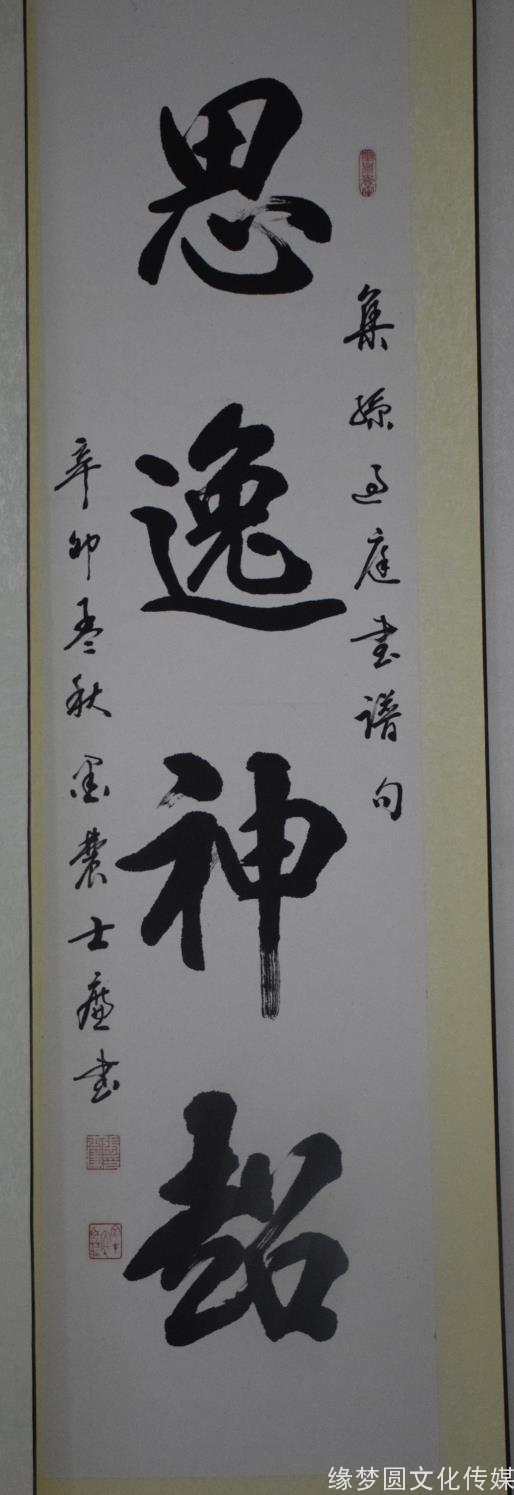 集孫過庭書譜句
思逸神超
辛卯孟秋墨農士廉書
缘梦圆文化传媒